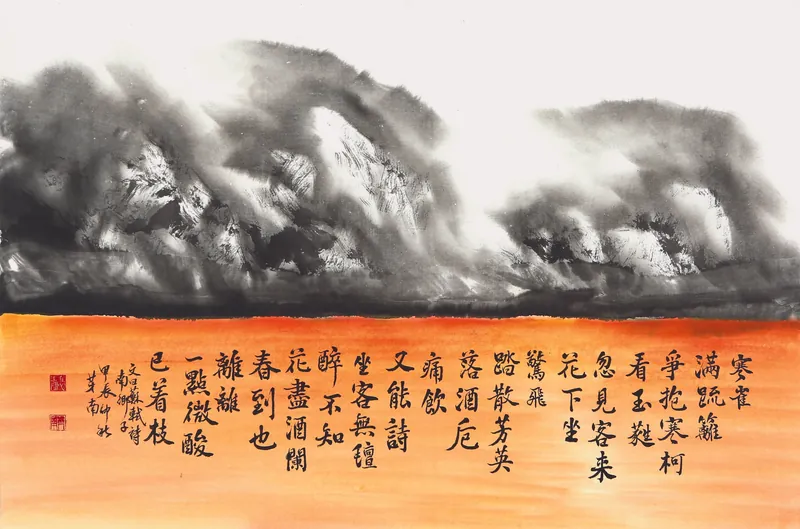 寒雀
滿疏籬
爭抱寒柯
看玉蕤
忽見客来
花下坐
驚飛
踏散芳英
落酒卮
痛飲
又能詩
坐客無氊
醉不知
花盡酒闌
春到也
離離
一點微酸
已着枝
文曰蘇軾詩
南鄉子
甲辰仲秋